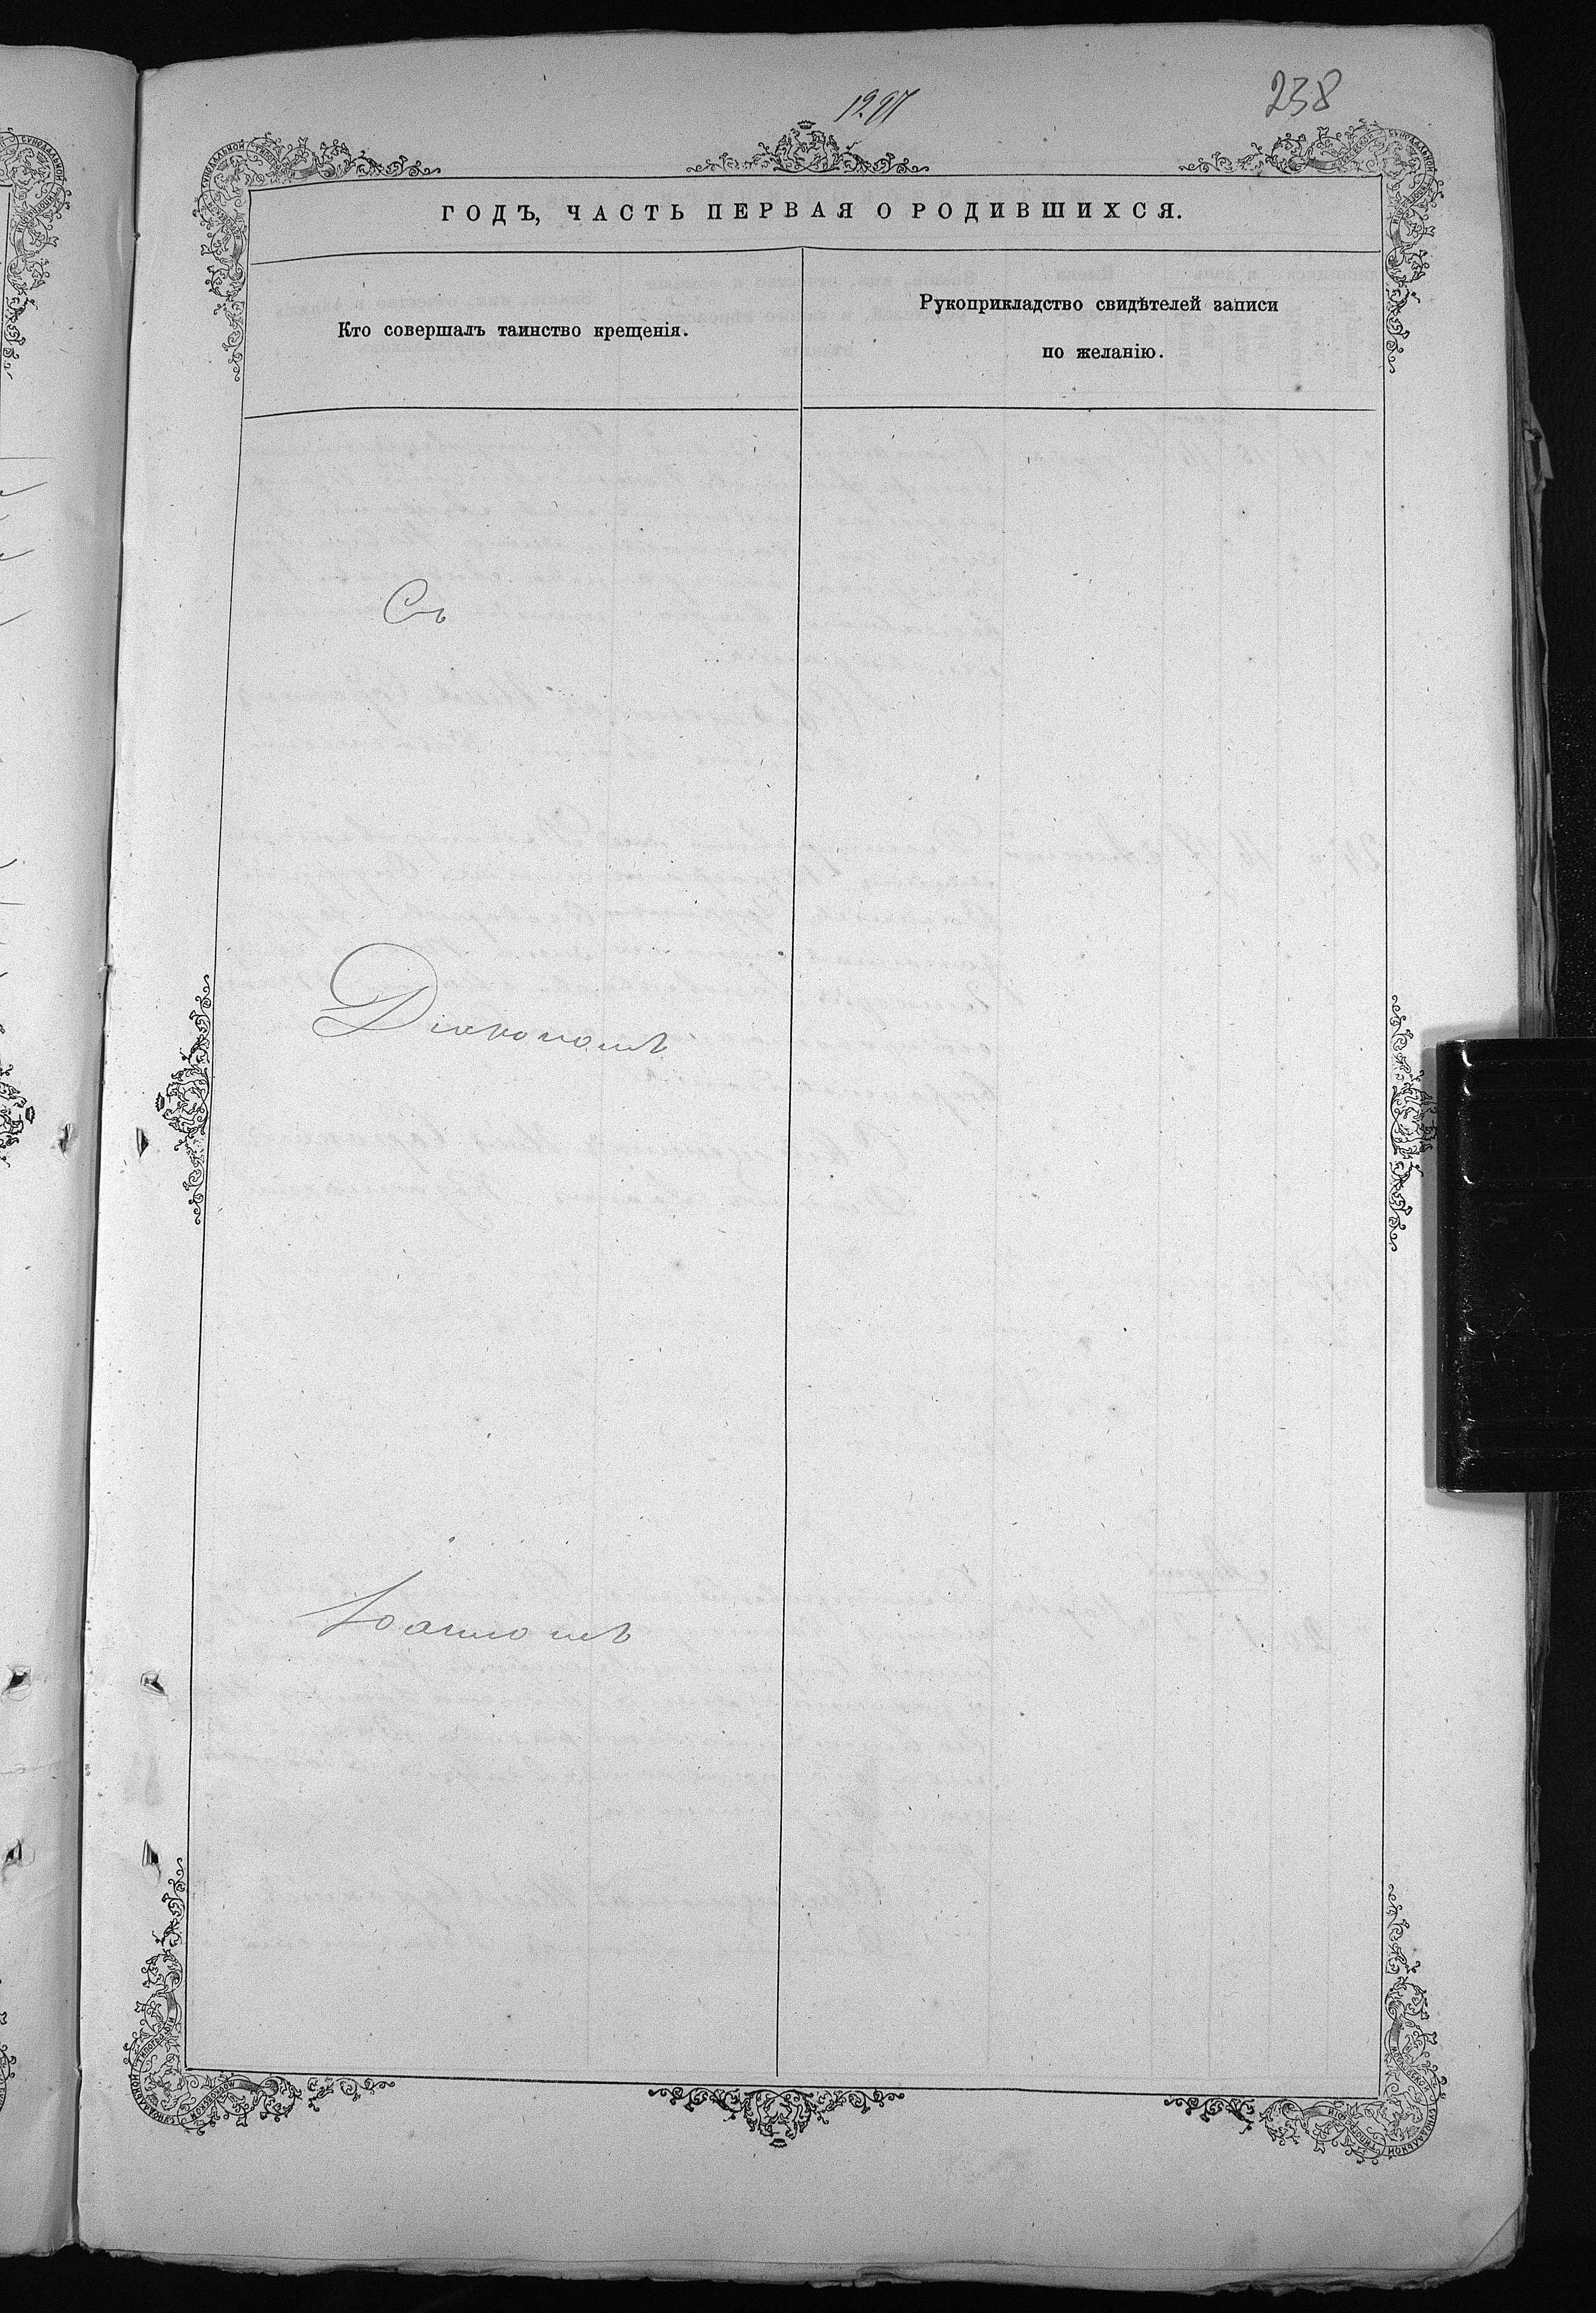 238
ГОДЪ, ЧАСТЬ ПЕРВАЯ О РОДИВШИХСЯ.
Кто совершалъ таинство крещенія.
Рукоприкладство свидѣтелей записи
по желанію.
Съ
Діакономъ
Іоанномъ